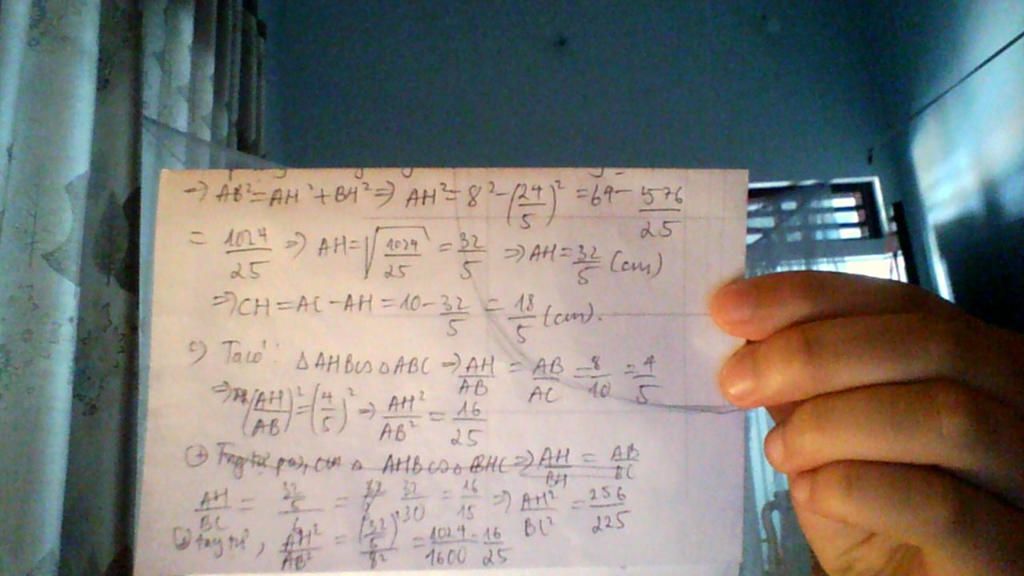 => AB² = AH² + BH² => AH² = 8² - (24/5)² = 64 - 576/25
= 1024/25 => AH = √(1024/25) = 32/5 => AH = 32/5 (cm)
=> CH = AC - AH = 10 - 32/5 = 18/5 (cm).
c) Ta có: △AHB ∽ △ABC => AH/AB = AB/AC = 8/10 = 4/5
=> (AH/AB)² = (4/5)² => AH²/AB² = 16/25
△ AHB ∽ △ BHC => AH/BH = AB/BC
AH/BC = 32/5 / 6 = 32/30 = 16/15 => AH²/BC² = 256/225
AH²/AB² = (32/5)²/8² = 1024/1600 = 16/25